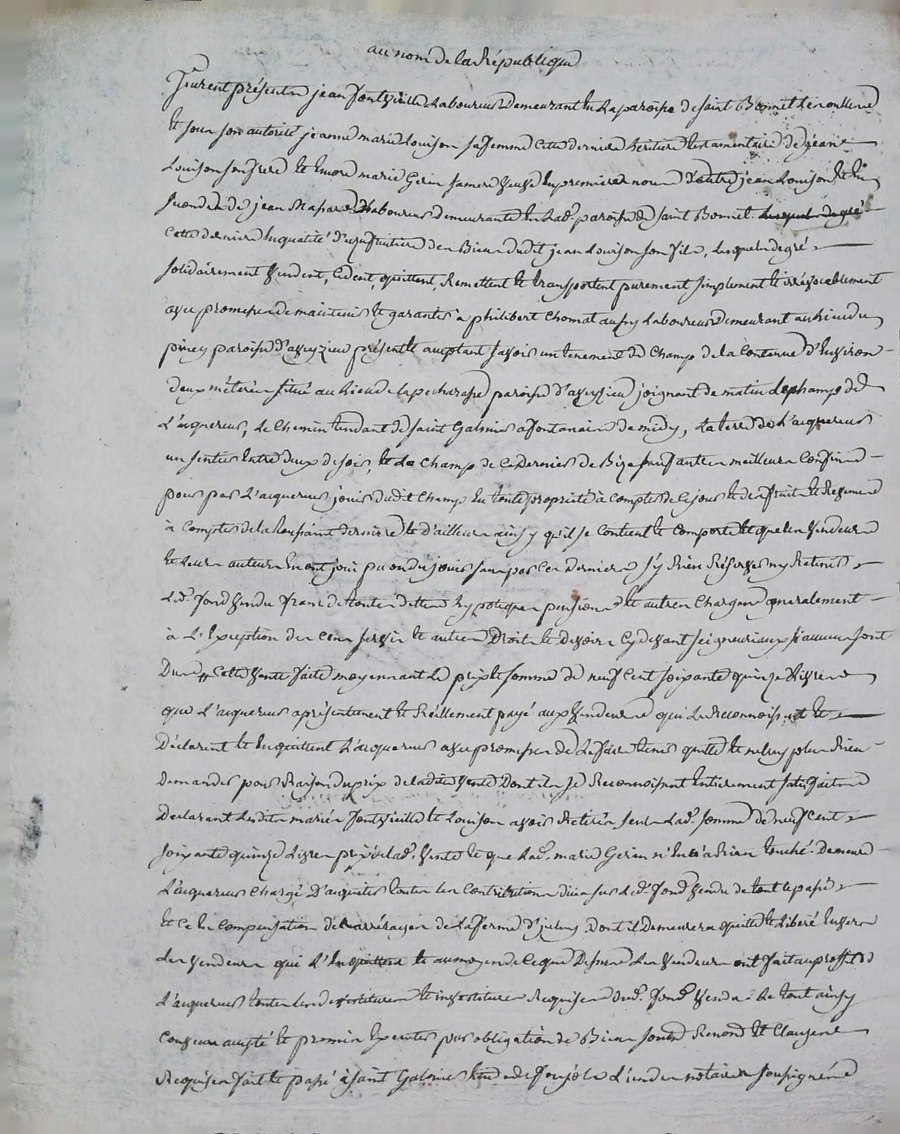 au nom de la République
furent présents jean fontvieille Laboureur demeurant en la paroisse de saint Bonnet Les oulles
et sous son autorité jeanne marie Louison sa femme cette derniere héritiere testamentaire de jean
Louison son frere et encore marie Gerin sa mere veuve en premieres noces d'autre jean Louison et en
secondes de jean Laboureur demeurante en lad. paroisse de saint Bonnet
cette derniere en qualité d'usufruitiere des Biens dudit jean Louison son fils, Lesquels de gré
solidairement vendent, cedent, quittent, Remettent et transportent purement simplement et irrévocablement
avec promesse de maintenir et garantir à philibert Chomat aussy Laboureur demeurant au lieu du
piney paroisse d'aveyzieu présent et acceptant savoir un tenement de Champ de la Contenue d'Environ
deux méterées situé au Lieu de paroisse d'aveyzieu joignant de matin le champ de
L'aquereur, Le Chemin tendant de saint Galmier a fontanais de midy, La terre de L'aquereur
un sentier entre deux de soir, et Le Champ de ce dernier de Bize sauf autres meilleurs Confins
pour par L'aquereur jouir dudit Champ en toute propriété à compter de ce jour et des fruits et Revenus
à Compter de la toussaint derniere et d'ailleurs ainsy qu'il se Contient et Comporte et que les vendeurs
et Leurs auteurs en ont joui pu ou du jouir sans par ces derniers s'y Rien Réserver ny Retenir
Led. fond vendu franc de toutes dettes hypoteques pensions et autres Charges generalement
à L'Exception des Cens servis et autres Droits et devoirs Cydevant seigneuriaux si aucuns sont
Dus cette vente faite moyennant Le prix et somme de neuf cent soixante quinze Livres
que L'aquereur a présentement et Réellement payé aux vendeurs qui Le Reconnoissent et
Déclarent et en quittent L'acquereur avec promesse de Le faire tenir quitte et ne luy plus Rien
Demander pour Raison du prix de ladite vente Dont ils se Reconnoissent Entierement satisfaits
Declarant Lesdits mariés fontvieille et Louison avoir Retiré seuls Lad. somme de neuf cent
soixante quinze Livres prix de lad. vente et que Lad. marie Gerin n'en a Rien touché. Demeure
L'aquereur Chargé D'aquiter toutes les Contributions dues sur Led. fond vendu de tout le passé
et ce en Compensation des arrérages de La ferme d'iceluy Dont il Demeurera quitte et Libéré Envers
Les vendeurs qui L'en quittent et au moyen de ce que Dessus Les vendeurs ont fait au proffit de
L'aquereur toutes les devestitures et investitures Requises dud. fond vendu. Le tout ainsy
Convenu accepté et promis Executer par obligation de Biens soumis Renoncé et Clauses
Requises fait et passé à saint Galmier Etude de l'un des notaires soussignés